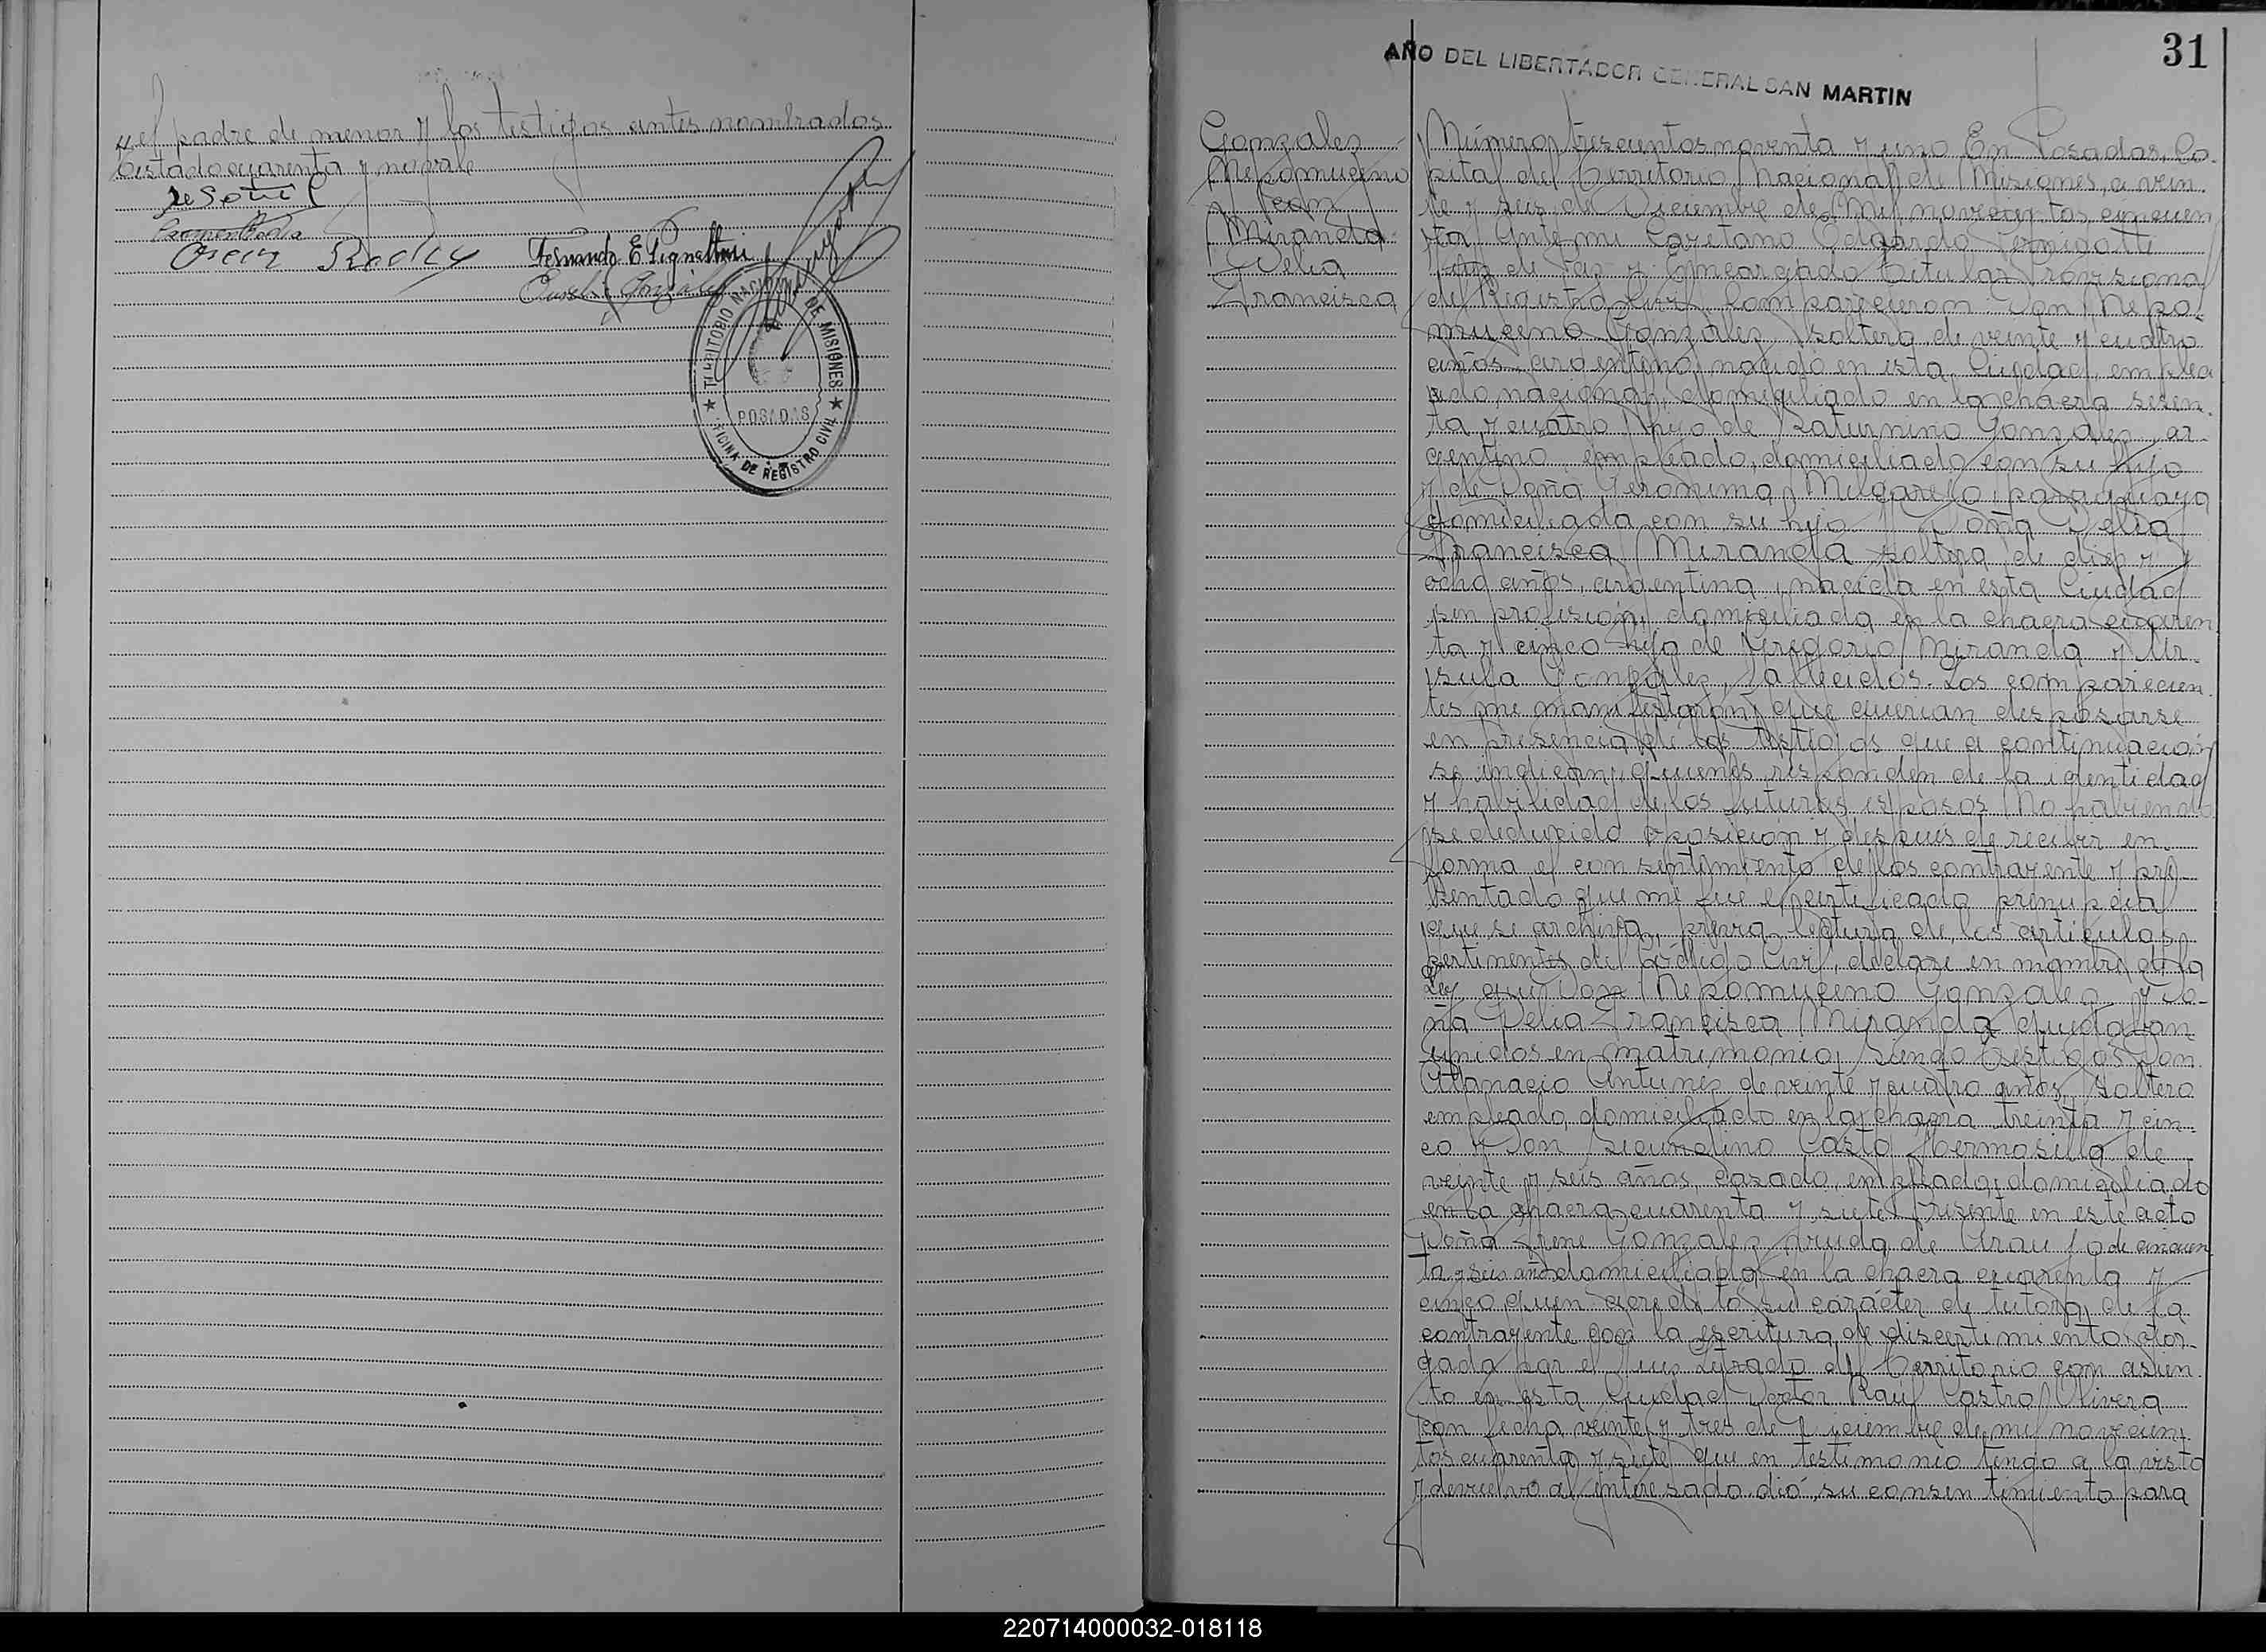 y el padre de menor y los testigos antes nombrados.
Testado cuarenta y no vale
Oscar
Fernando E Pignaltari
TERRITORIO NACIONAL DE MISIONES
POSADAS
OFICINA DE REGISTRO CIVIL
AÑO DEL LIBERTADOR GENERAL SAN MARTIN
31
Gonzalez
Nepomuceno
con
Miranda
Delia
Francisca
Número trescientos noventa y uno En Posadas, Ca-
pital del Territorio Nacional de Misiones, a vein-
te y seis de Diciembre de Mil novecientos cincuen
ta Ante mi Cayetano Edgardo
Juez de Paz y Encargado Titular Provisional
del Registro Civil, Comparecieron: Don Nepo-
muceno Gonzalez, soltero, de veinte y cuatro
años, argentino, nacido en esta Ciudad, emplea
do nacional, domiciliado en la chacra sesen-
ta y cuatro hijo de Saturnino Gonzalez, ar-
gentino, empleado, domiciliado con su hijo
y de Doña Geronima Melgarejo, paraguaya
domiciliada con su hijo y Doña Delia
Francisca Miranda soltera, de diez y
ocho años, argentina, nacida en esta Ciudad
sin profesión, domiciliada en la chacra cuaren
ta y cinco hija de Gregorio Miranda y Ur-
sula Gonzalez, fallecidos. Los comparecien-
tes me manifestaron que querian desposarse
en presencia de los testigos que a continuación
se indican, quienes responden de la identidad
y habilidad de los futuros esposos No habiendo
se deducido oposición y después de recibir en
forma el consentimiento de los contrayente y pre-
sentado que me fue el certificado prenupcial
que se archiva, previa lectura de los articulos
pertinentes del Código Civil, declaré en nombre de la
Ley que Don Nepomuceno Gonzalez y Do-
ña Delia Francisca Miranda quedaban
unidos en matrimonio, Siendo Testigos Don
Atanacio Antunez de veinte y cuatro años, soltero
empleado, domiciliado en la chacra treinta y cin-
co y Don Secundino Casto Hermosilla de
veinte y seis años, casado, empleado, domiciliado
en la chacra cuarenta y siete Presente en este acto
Doña Irene Gonzalez viuda de Araujo de cincuen
ta y seis años domiciliada en la chacra cuarenta y
cinco quien acredito su carácter de tutora de la
contrayente con la escritura de discernimiento otor-
gada por el Juez Letrado del Territorio con asien-
to en esta Ciudad Doctor Raul Castro Olivera
con fecha veinte y tres de Diciembre de mil novecien-
tos cuarenta y siete que en testimonio tengo a la vista
y devuelvo al interesado dió su consentimiento para
220714000032-018118